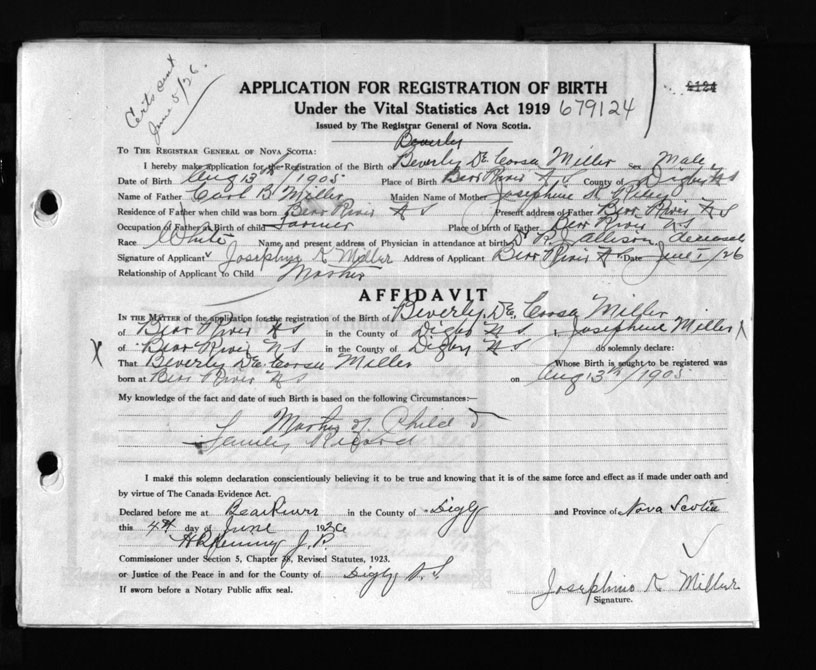 Certs sent
June 5/26.
APPLICATION FOR REGISTRATION OF BIRTH
2124
Under the Vital Statistics Act 1919 679124
Issued by The Registrar General of Nova Scotia.
Beverly
TO THE REGISTRAR GENERAL OF NOVA SCOTIA:
I hereby make application for the Registration of the Birth of Beverly De Corsa Miller Sex Male
Date of Birth Aug 13th/1905 Place of Birth Bear River N S County of Digby N S
Name of Father Carl B. Miller Maiden Name of Mother Josephine
Residence of Father when child was born Bear River N S Present address of Father Bear River N S
Occupation of Father at Birth of child Farmer Place of birth of Father Bear River N S
Race White Name, and present address of Physician in attendance at birth Dr
Signature of Applicant Josephine Miller Address of Applicant Bear River N S Date June 1/26
Relationship of Applicant to Child Mother
AFFIDAVIT
IN THE MATTER of the application for the registration of the Birth of Beverly De Corsa Miller
of Bear River N S in the County of Digby N S I, Josephine Miller X
X of Bear River N S in the County of Digby N S do solemnly declare:
That Beverly De Corsa Miller Whose Birth is sought to be registered was
born at Bear River N S on Aug 13th/1905
My knowledge of the fact and date of such Birth is based on the following Circumstances:—
Mother of Child &
Family Record
I make this solemn declaration conscientiously believing it to be true and knowing that it is of the same force and effect as if made under oath and
by virtue of The Canada Evidence Act.
Declared before me at Bear River in the County of Digby and Province of Nova Scotia
this 4th day of June 1926
J. P.
Commissioner under Section 5, Chapter 78, Revised Statutes, 1923.
or Justice of the Peace in and for the County of Digby N. S.
If sworn before a Notary Public affix seal.
Josephine Miller
Signature.